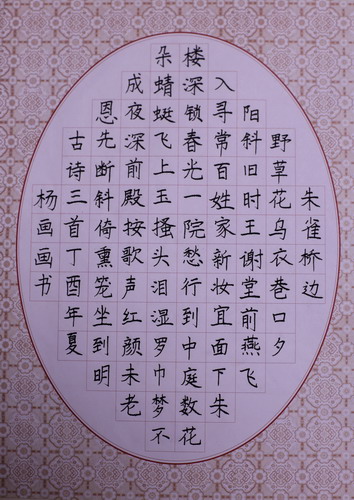 朱雀桥边
野草花乌衣巷口夕
阳斜旧时王谢堂前燕飞
入寻常百姓家新妆宜面下朱
楼深锁春光一院愁行到中庭数花
朵蜻蜓飞上玉搔头泪湿罗巾梦不
成夜深前殿按歌声红颜未老
恩先断斜倚熏笼坐到明
古诗三首丁酉年夏
杨画画书